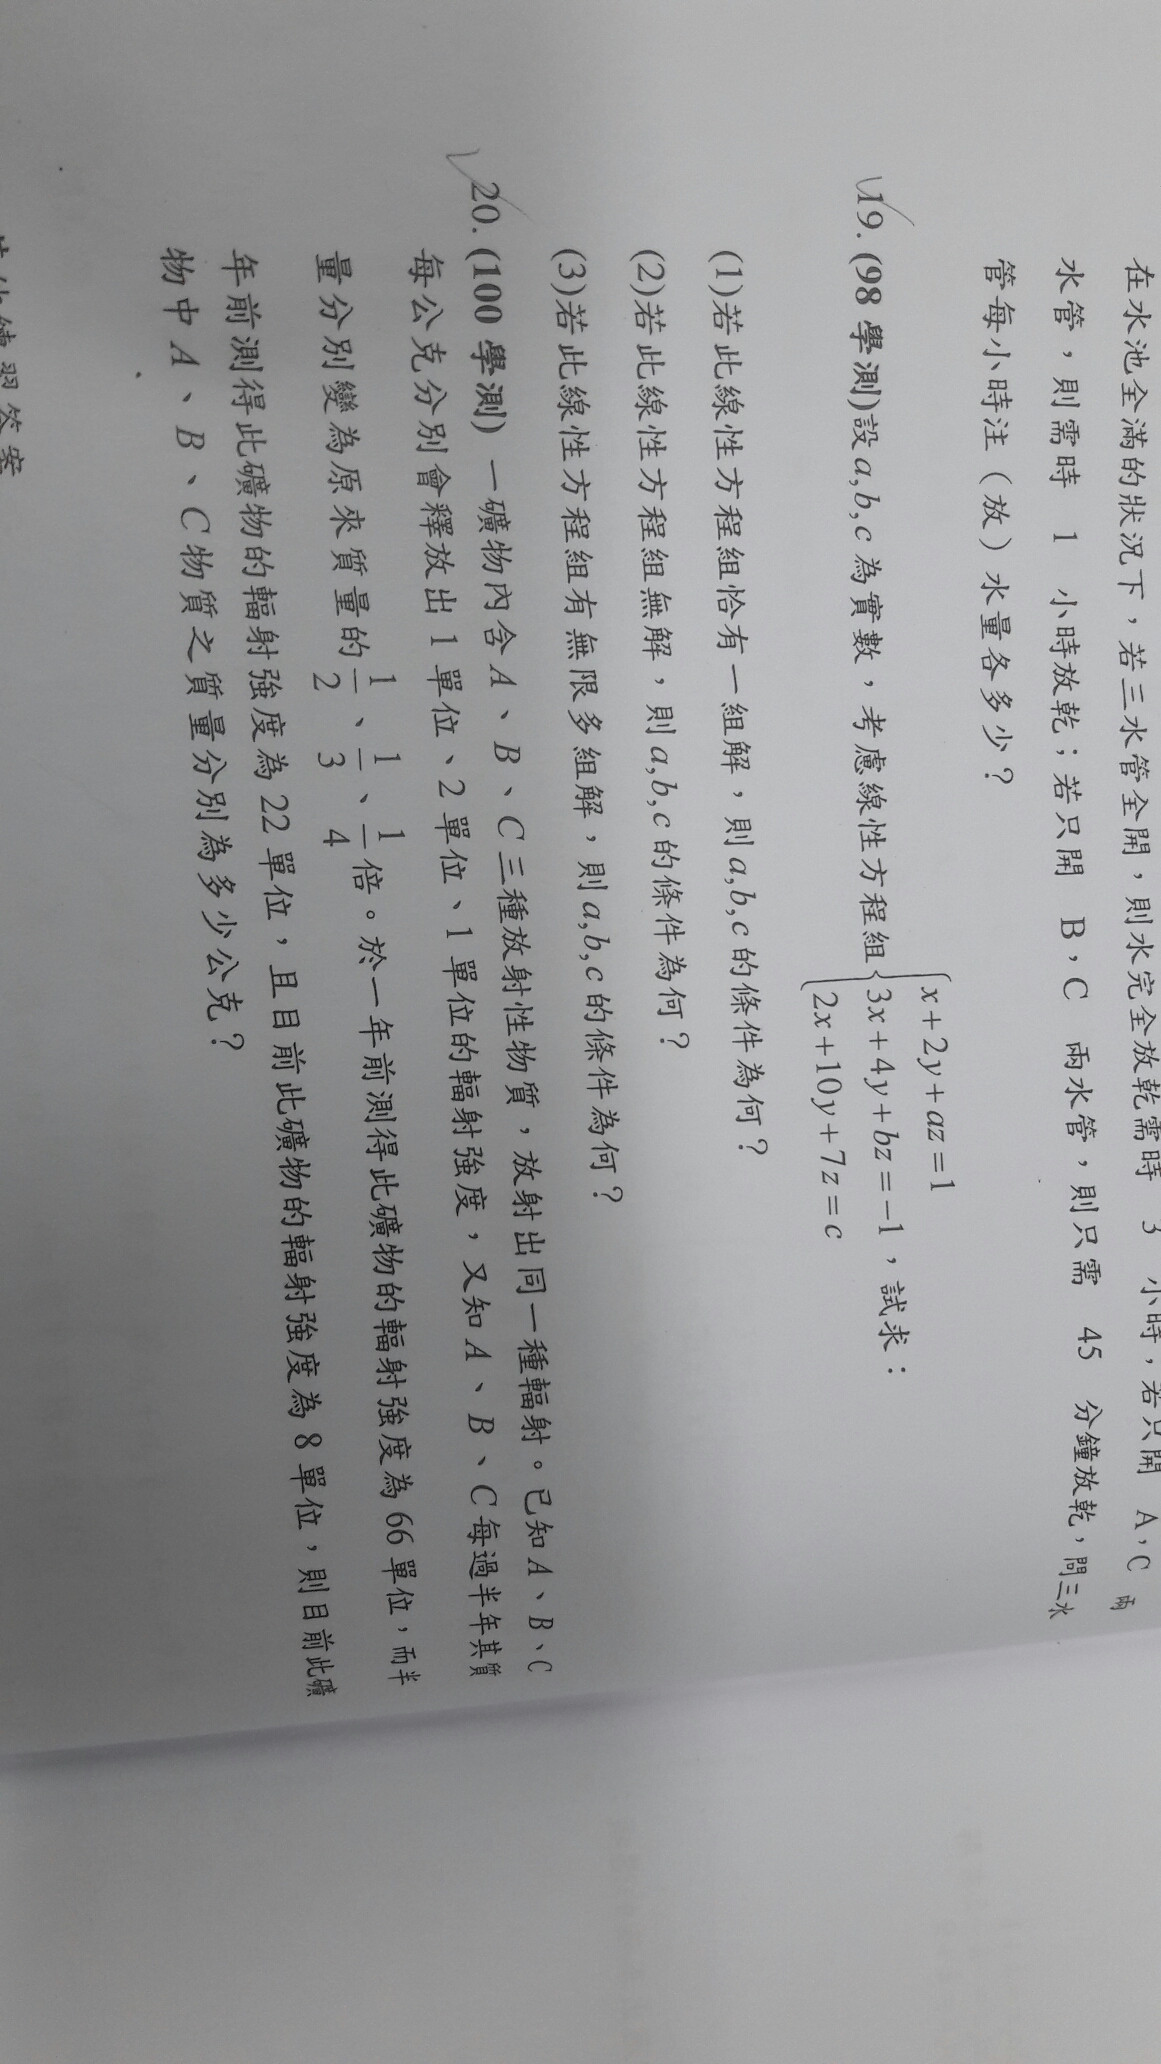 在水池全滿的狀況下，若三水管全開，則水完全放乾需時 3 小時，若只開 A，C 兩
水管，則需時 1 小時放乾；若只開 B，C 兩水管，則只需 45 分鐘放乾，問三水
管每小時注（放）水量各多少？
19. (98 學測)設 a,b,c 為實數，考慮線性方程組 { x+2y+az=1
3x+4y+bz=-1，試求：
2x+10y+7z=c
(1)若此線性方程組恰有一組解，則a,b,c的條件為何？
(2)若此線性方程組無解，則a,b,c的條件為何？
(3)若此線性方程組有無限多組解，則a,b,c的條件為何？
20. (100 學測) 一礦物內含 A、B、C三種放射性物質，放射出同一種輻射。已知 A、B、C
每公克分別會釋放出1單位、2單位、1單位的輻射強度，又知 A、B、C每過半年其質
量分別變為原來質量的 1/2、1/3、1/4 倍。於一年前測得此礦物的輻射強度為 66 單位，而半
年前測得此礦物的輻射強度為 22 單位，且目前此礦物的輻射強度為 8 單位，則目前此礦
物中 A、B、C物質之質量分別為多少公克？
練習答案